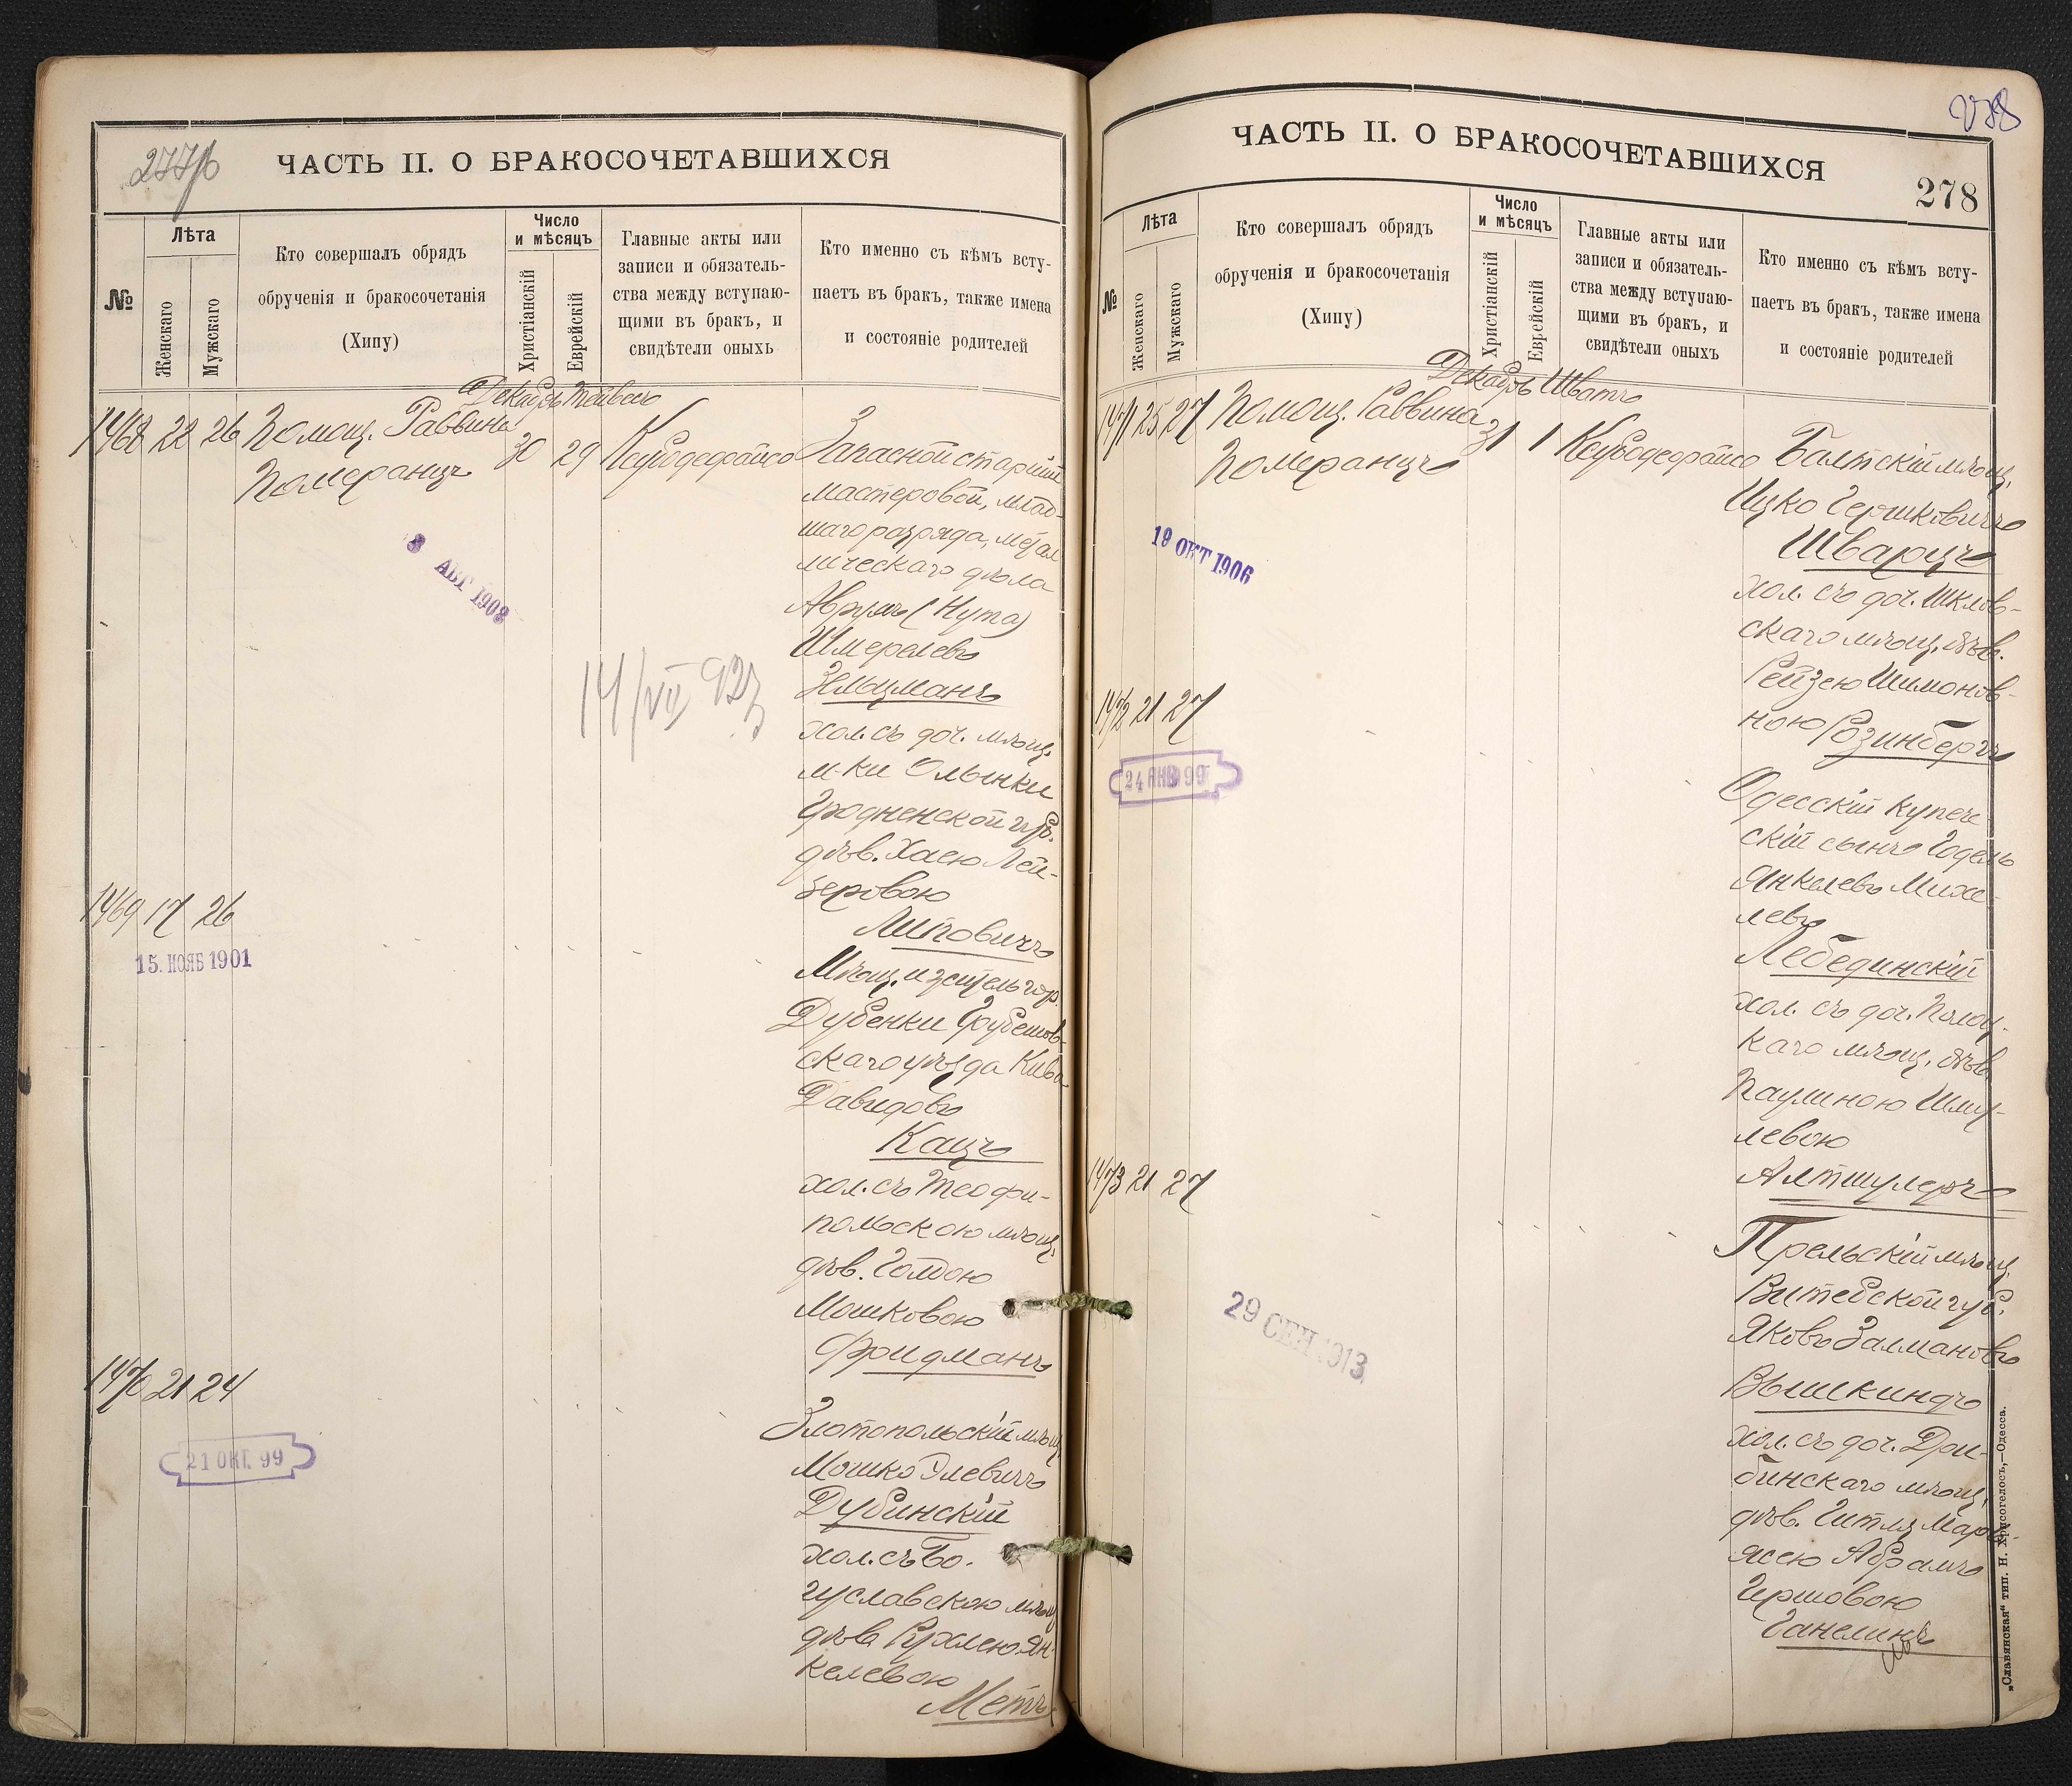 277/б
ЧАСТЬ II. О БРАКОСОЧЕТАВШИХСЯ
№
Лѣта
Женскаго
Мужскаго
Кто совершалъ обрядъ
обрученія и бракосочетанія
(Хипу)
Число
и мѣсяцъ
Христіанскій
Еврейскій
Главные акты или
записи и обязатель-
ства между вступаю-
щими въ бракъ, и
свидѣтели оныхъ
Кто именно съ кѣмъ всту-
паетъ въ бракъ, также имена
и состояніе родителей
Декабрь Тейвесъ
1468 22 26 Помощ. Раввина 30 29
Померанцъ
Запасной старшій
мастеровой, млад-
шаго разряда, метал
лическаго дѣла
Аврумъ (Нута)
Шмерелевъ
Зельцманъ
хол. съ доч. мѣщ.
м-ки Олынки
Гродненской губ.
дѣв. Хаею Лей-
зеровою
Липовичъ
8 АВГ 1908
14/VII 92
1469 17 26
15. НОЯБ 1901
Мѣщ. и житель гор.
Дубенки Грубешов-
скаго уѣзда Кива
Давидовъ
Кацъ
хол. съ Теофи-
польскою мѣщ.
дѣв. Голдою
Мошковою
Фридманъ
1470 21 24
21 ОКТ. 99
Златопольскій мѣщ.
Мошко Элевичъ
Дубинскій
хол. съ Бо-
гуславскою мѣщ
дѣв. Рухлею Ян-
келевою
Метъ
ЧАСТЬ II. О БРАКОСОЧЕТАВШИХСЯ
278
№
Лѣта
Женскаго
Мужскаго
Кто совершалъ обрядъ
обрученія и бракосочетанія
(Хипу)
Число
и мѣсяцъ
Христіанскій
Еврейскій
Главные акты или
записи и обязатель-
ства между вступаю-
щими въ бракъ, и
свидѣтели оныхъ
Кто именно съ кѣмъ всту-
паетъ въ бракъ, также имена
и состояніе родителей
Декабрь Шватъ
1471 25 27 Помощ. Раввина 31 1
Померанцъ
19 ОКТ 1906
Балтскій мѣщ.
Ицко Гершковичъ
Шварцъ
хол. съ доч. Шклов-
скаго мѣщ. дѣв.
Рейзею Шимонов-
ною Розинбергъ
1472 21 27
24 ЯНВ 99
Одесскій купече
скій сынъ Годель
Янкелевъ Михе-
левъ
Лебединскій
хол. съ доч. Полоц-
каго мѣщ. дѣв.
Паулиною Шму-
левою
Алтшулеръ
1473 21 27
29 СЕН 1913
Витебской губ.
Яковъ Залмановъ
Вышкиндъ
хол. съ доч. Дри-
бинскаго мѣщ.
дѣв. Гитля Марь-
ясею Абрамъ
Гершовою
Ганелинъ
„Славянская“ тип. Н. Хрисогелосъ,—Одесса.